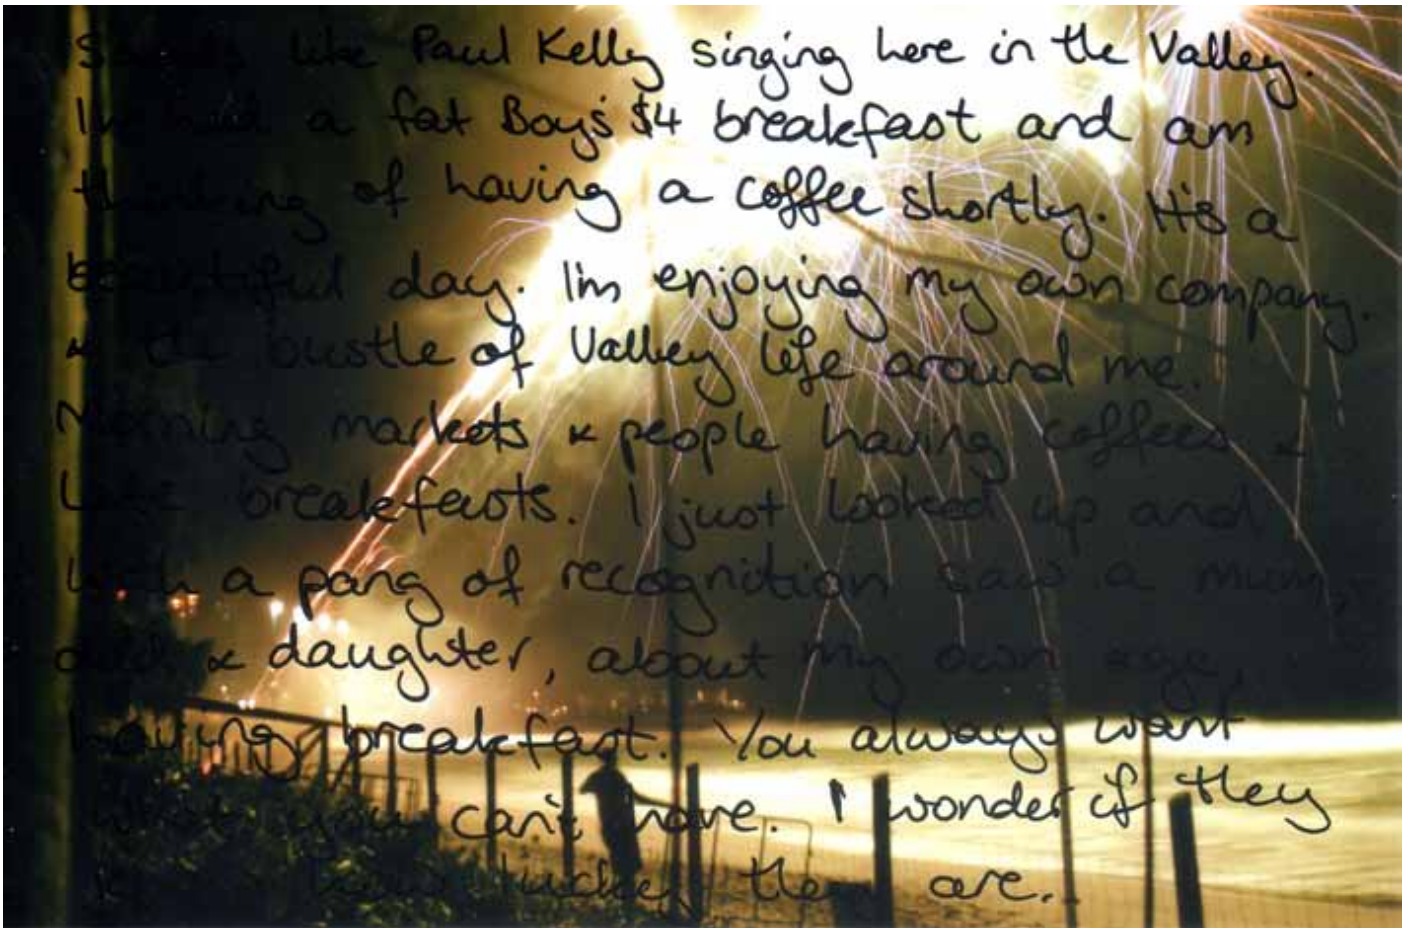 Sounds like Paul Kelly singing here in the Valley.
I've had a fat Boy's $4 breakfast and am
thinking of having a coffee shortly. It's a
beautiful day. I'm enjoying my own company.
& the bustle of Valley life around me.
Morning markets & people having coffees &
late breakfasts. I just looked up and
with a pang of recognition saw a mum,
dad & daughter, about my own age,
having breakfast. You always want
what you can't have. I wonder if they
know how lucky they are.